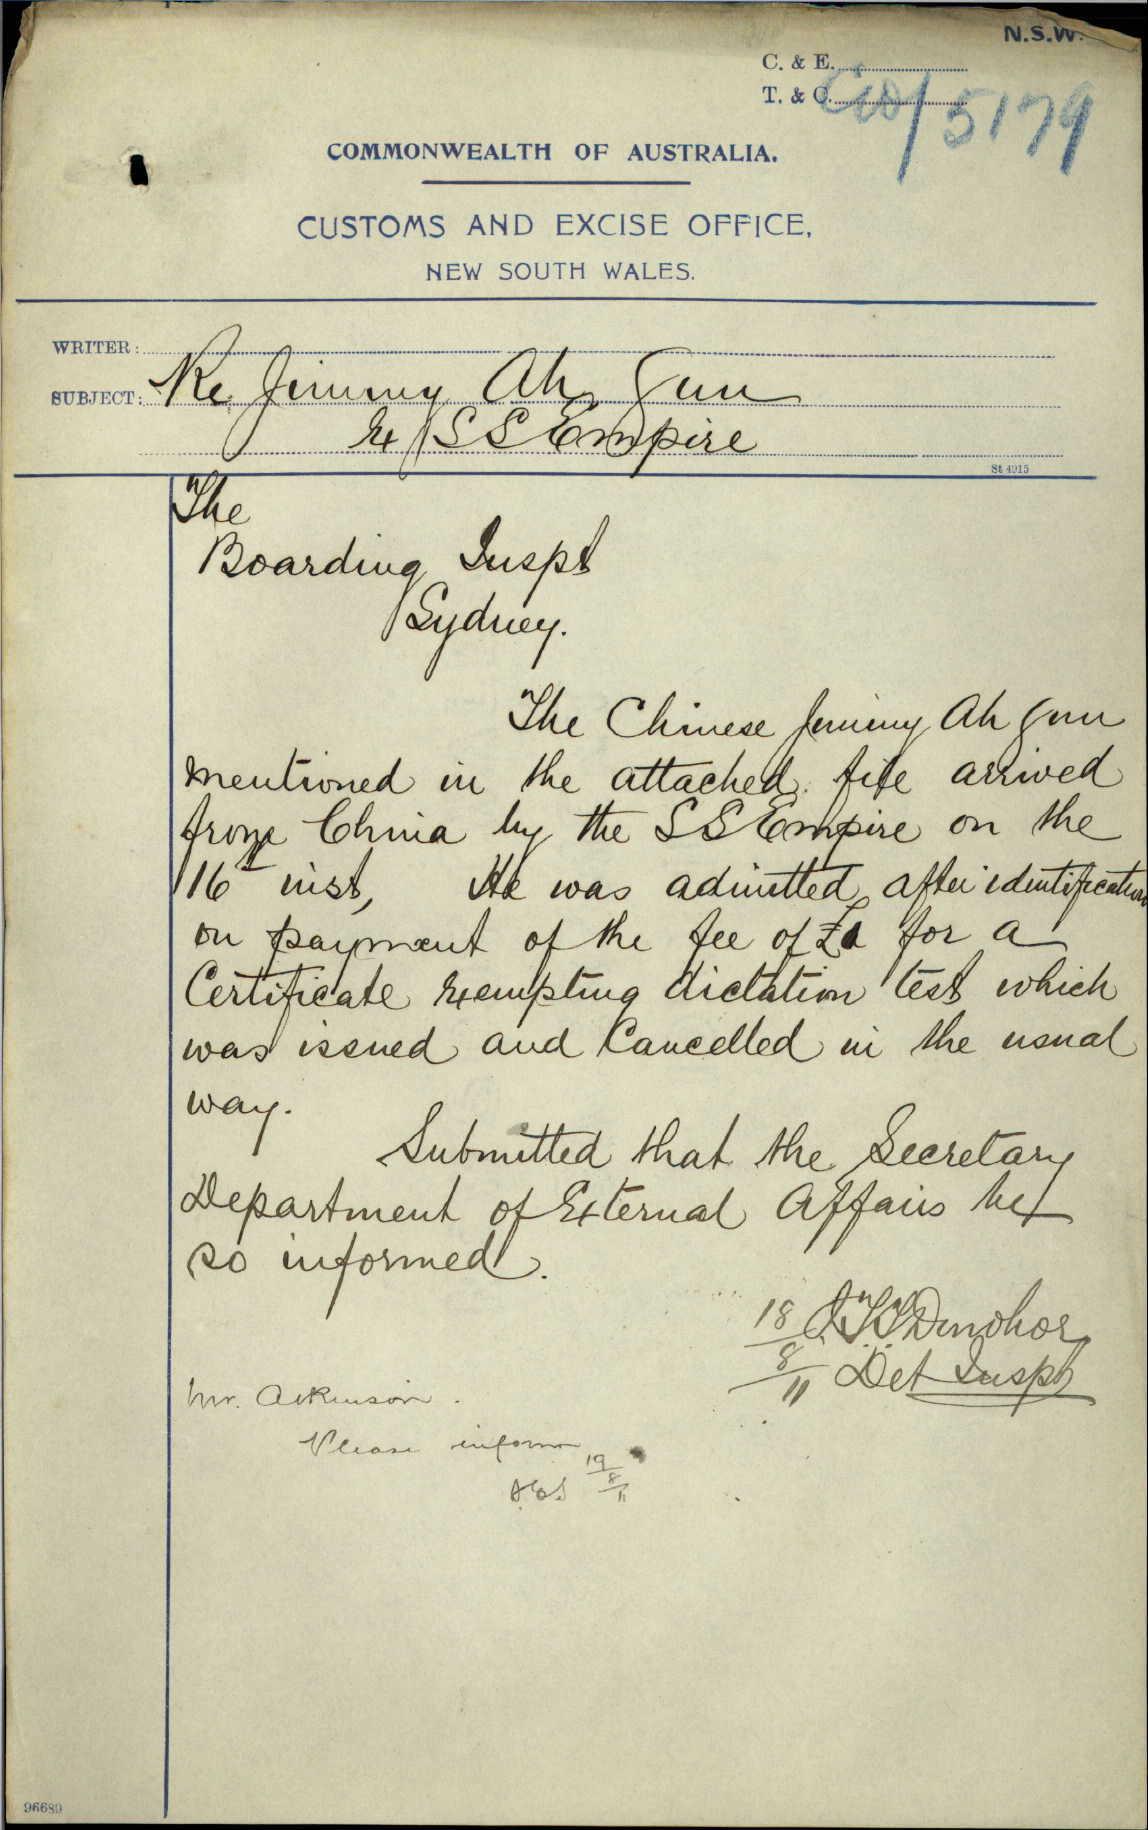 N.S.W.
C. & E.
T. & C.
C10/5179
COMMONWEALTH OF AUSTRALIA.
CUSTOMS AND EXCISE OFFICE,
NEW SOUTH WALES.
WRITER:
SUBJECT: Re Jimmy Ah Gun
Ex SS Empire
St 4915
The
Boarding Inspt
Sydney.
The Chinese Jimmy Ah Gun
mentioned in the attached file arrived
from China by the SS Empire on the
16th inst, He was admitted after identification
on payment of the fee of £1 for a
Certificate Exempting dictation test which
was issued and Cancelled in the usual
way.
Submitted that the Secretary
Department of External Affairs be
so informed.
18/8/11 J.T.T. Donohoe
Det Inspt
Mr. Atkinson.
Please inform
19/8/11
96689